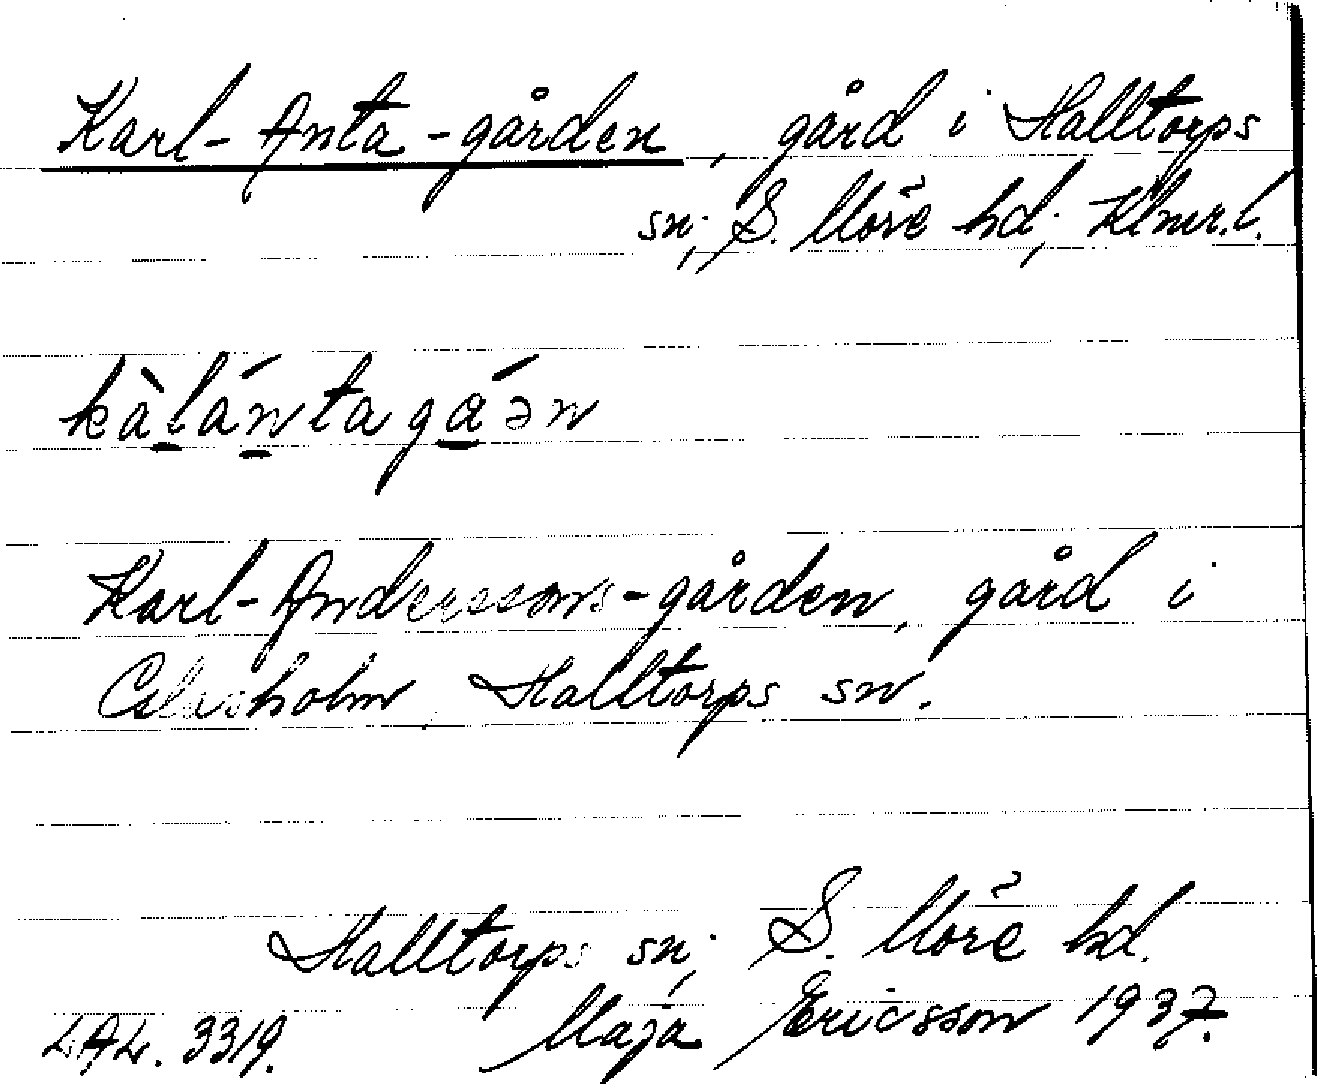 Karl-Anta-gården, gård i Halltorps
sn; S. Möre hd; Klmr.l.
kàlántagáən
Karl-Anderssons-gården, gård i
Halltorps sn.
Halltorps sn; S. Möre hd.
LAL. 3319. Maja Ericsson 1937.